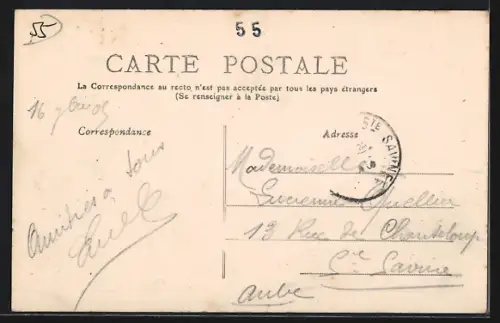 55
55
CARTE POSTALE
La Correspondance au recto n'est pas acceptée par tous les pays étrangers
(Se renseigner à la Poste)
16
Correspondance
Adresse
STE SAVINE
Mademoiselle
Suzanne
13 Rue de Chanteloup
Ste Savine
Aube
Amitiés à tous